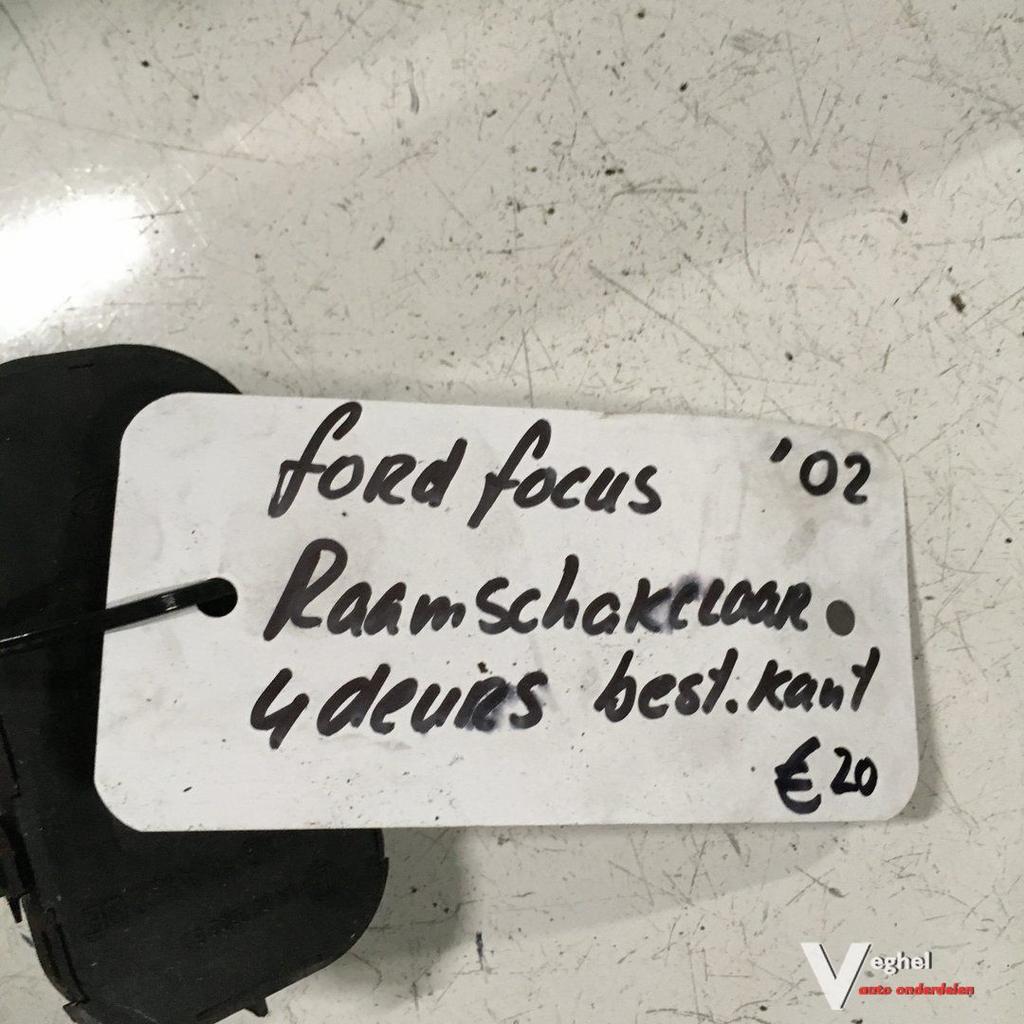 ford focus '02
Raamschakelaar.
4 deurs best. kant
€ 20
Veghel
auto onderdelen